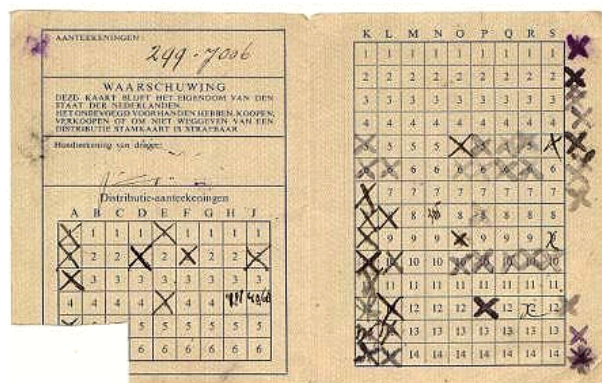 AANTEEKENINGEN:
299-7006
WAARSCHUWING
DEZE KAART BLIJFT HET EIGENDOM VAN DEN
STAAT DER NEDERLANDEN.
HET ONBEVOEGD VOORHANDEN HEBBEN, KOOPEN,
VERKOOPEN OF OM NIET WEGGEVEN VAN EEN
DISTRIBUTIE STAMKAART IS STRAFBAAR.
Handteekening van drager:
Distributie-aanteekeningen
A B C D E F G H J
1 1 1 1 1 1
2 2 2 2
3 3 3 3 3 3 3 3
4 4 4 4 4 4
5 5 5 5 5 5 5
6 6 6 6 6 6
K L M N O P Q R S
1 1 1 1 1 1 1 1 1
2 2 2 2 2 2 2 2 2
3 3 3 3 3 3 3 3 3
4 4 4 4 4 4 4 4 4
5 5 5 5
6 6 6 6 6 6
7 7 7 7 7 7 7 7
8 8 8 8 8
9 9 9 9 9 9
10 10 10 10 10 10 10
11 11 11 11 11 11 11 11
12 12 12 12 12 12
13 13 13 13 13 13 13
14 14 14 14 14 14 14